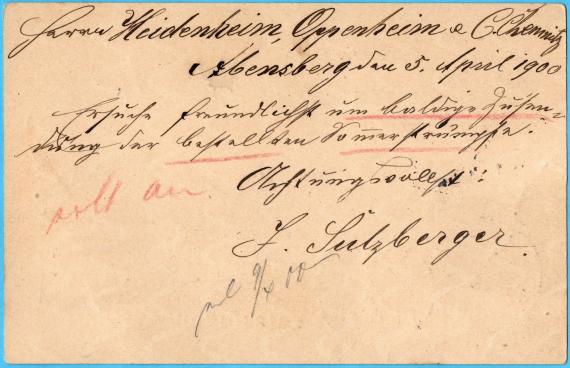 Herrn Heidenheim, Oppenheim & C. Chemnitz
Abensberg den 5. April 1900
Ersuche freundlichst um baldige Zusen-
dung der bestellten Sommerstrümpfe.
Achtungsvollst:
J. Sulzberger.